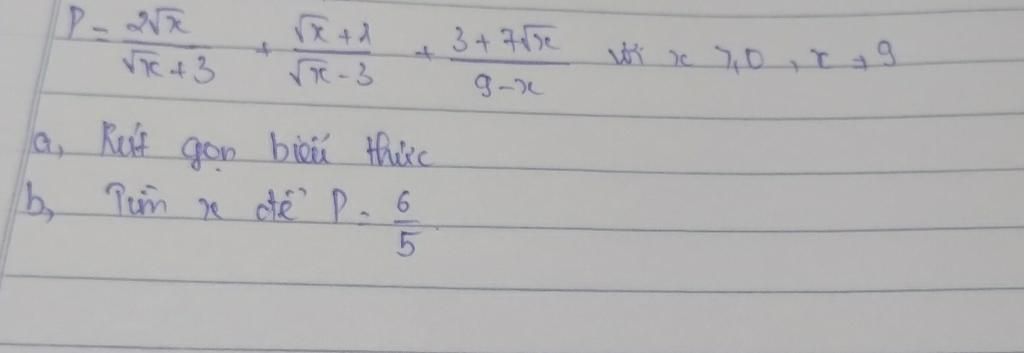 P = \frac{2\sqrt{x}}{\sqrt{x}+3} + \frac{\sqrt{x}+1}{\sqrt{x}-3} + \frac{3+7\sqrt{x}}{9-x} với x ≥ 0, x ≠ 9
a, Rút gọn biểu thức
b, Tìm x để P = \frac{6}{5}